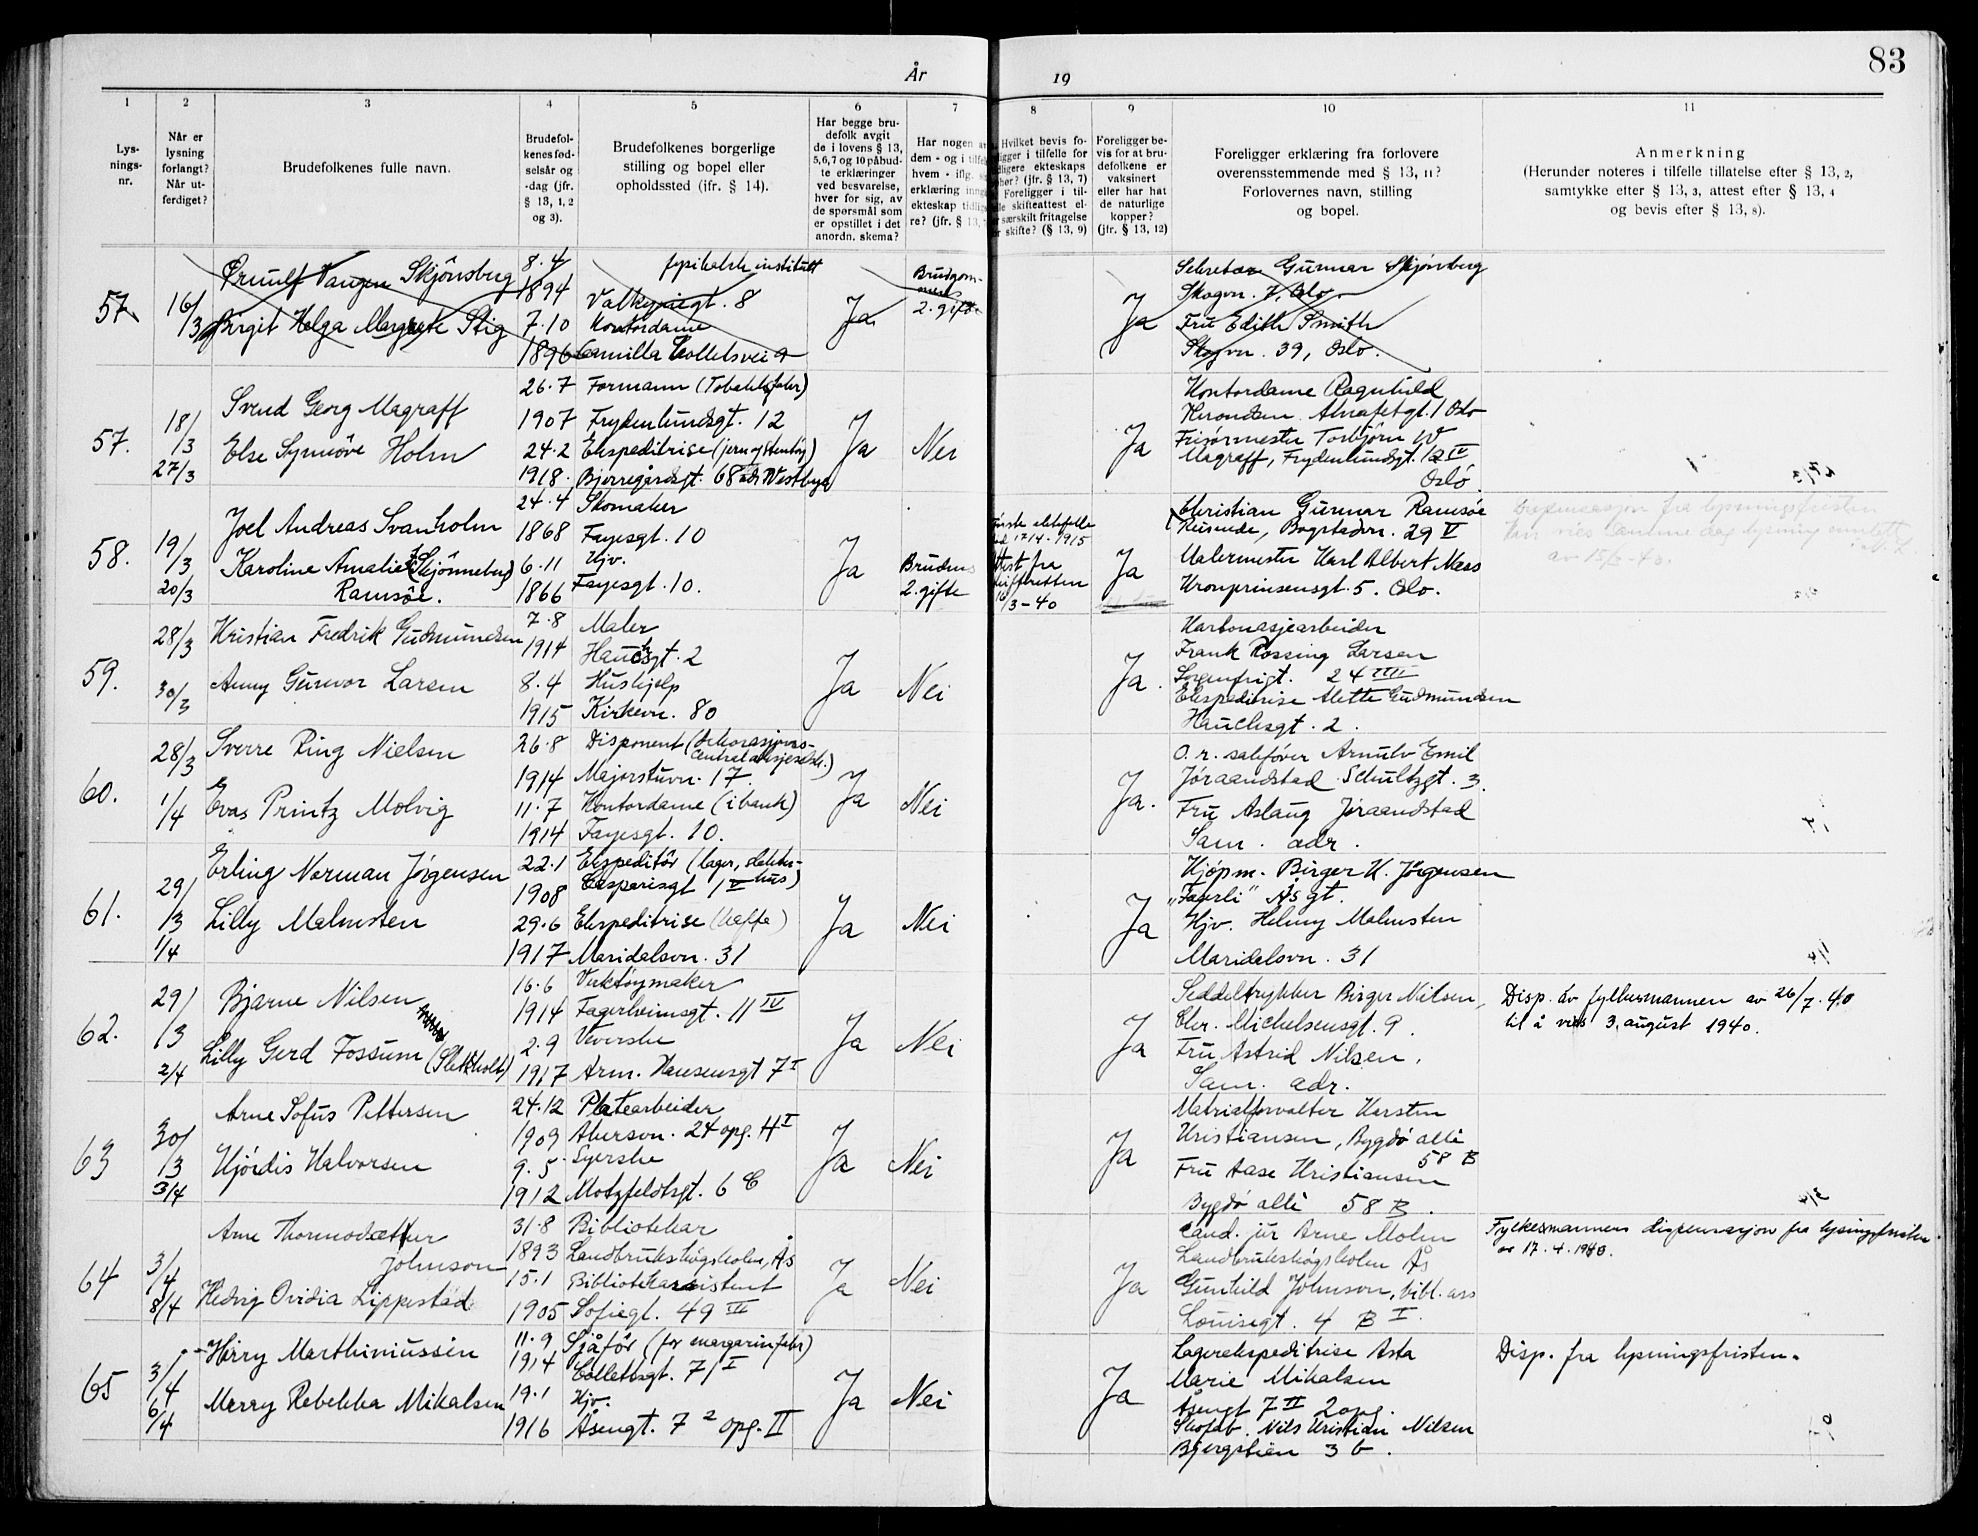 År 19
83
1 2 3 4 5 6 7 8 9 10 11
Lys-
nings-
nr.
Når er
lysning
forlangt?
Når ut-
ferdiget?
Brudefolkenes fulle navn.
Brudefol-
kenes fød-
selsår og
-dag (jfr.
§ 13, 1, 2
og 3).
Brudefolkenes borgerlige
stilling og bopel eller
opholdssted (jfr. § 14).
Har begge bru-
defolk avgit
de i lovens § 13,
5,6,7 og 10 påbud-
te erklæringer
ved besvarelse,
hver for sig, av
de spørsmål som
er opstillet i det
anordn. skema?
Har nogen
dem - og i
hvem - iflg.
erklæring
ekteskap
re? (jfr. § 13,
Hvilket bevis fo-
i tilfelle for
ekteskaps
(jfr. § 13, 7)
Foreligger i til-
skifteattest el-
særskilt fritagelse
skifte? (§ 13, 9)
Foreligger be-
vis for at bru-
defolkene er
vaksinert
eller har hat
de naturlige
kopper?
(jfr. § 13, 12)
Foreligger erklæring fra forlovere
overensstemmende med § 13, 11?
Forlovernes navn, stilling
og bopel.
Anmerkning
(Herunder noteres i tilfelle tillatelse efter § 13, 2,
samtykke efter § 13, 3, attest efter § 13, 4
og bevis efter § 13, 8).
57. 16/3
Ørnulf Vangen Skjønsberg
Birgit Helga Margrete Stig
8.4
1894
7.10
1896
fysikalsk institutt
Valkyriegt. 8
Kontordame
Camilla Colletsvei 9
Ja
Brudgom-
mens
2. gifte
Ja
Sekretær Gunnar Skjønsberg
Skogvn. 7, Oslo.
Fru Edith Smith
Skogvn. 39, Oslo.
57. 18/3 27/3
Svend Georg Magraff
Else Synnöve Holm
26.7
1907
24.2
1918.
Formann (Tobakksfabr)
Frydenlundsgt. 12
Ekspeditrise (jern og stentøy)
Bjerregårdsgt. 68 Westbye
Ja
Nei
Ja
Kontordame Ragnhild
1 Oslo
Frisörmester Torbjörn W
Magraff, Frydenlundsgt. 12 IV
Oslo.
58. 19/3 20/3
Joel Andreas Svanholm
Karoline Amalie (Skjönneberg)
Ramsöe.
24.4
1868
6.11
1866
Skomaker
Fayesgt. 10
Hjv.
Fayesgt. 10.
Ja
Brudens
2. gifte
17/4-1915
fra
skifteretten
16/3-40
Ja
Christian Gunnar Ramsöe
Reisende, Bogstadvn. 29 V
Malermester Karl Albert Maas
Kronprinsensgt. 5. Oslo.
Dispensasjon fra lysningsfristen
59. 28/3 30/3
Kristian Fredrik Gudmundsen
Anny Gunvor Larsen
7.8
1914
8.4
1915
Maler
Hauchsgt. 2
Hushjelp
Kirkevn. 80
Ja
Nei
Ja.
Kartonasjearbeider
Frank Rossing Larsen
Sorgenfrigt. 24 IIII
Ekspeditrise Alette Gudmundsen
Hauchsgt. 2.
60. 28/3 1/4
Sverre Ring Nielsen
Evas Printz Molvig
26.8
1914
11.7
1914
Disponent (dekorasjons-
Majorstuvn. 17
Kontordame (i bank)
Fayesgt. 10.
Ja
Nei
Ja.
O. r. sakfører Arnulv Emil
Jöraandstad Schultzgt. 3.
Fru Aslaug Jöraandstad
Sam. adr.
61. 29/3 1/4
Erling Norman Jörgensen
Lilly Malmsten
22.1
1908
29.6
1917
Ekspeditör (lager,
hus)
Casparisgt 1 V
Ekspeditrise (kaffe)
Maridalsvn. 31
Ja
Nei
Ja
Kjöpm. Birger K. Jörgensen
"Fagerli" Ås gt.
Hjv. Helmy Malmsten
Maridalsvn. 31
1/4
62. 29/3 2/4
Bjarne Nilsen
Lilly Gerd Fossum (Slettholt)
16.6
1914
2.9
1917
Verktøymaker
Fagerheimsgt. 11 IV
Veverske
Arm. Hansensgt 7 I
Ja
Nei
Ja
Seddeltrykker Birger Nilsen,
Chr. Michelsensgt. 9.
Fru Astrid Nilsen.
Sam. adr.
Disp. av fylkesmannen av 26/7. 40
til å vies 3. august 1940.
63 30/3 3/4
Arne Sofus Pettersen
Hjördis Halvorsen
24.12
1909
9.5
1912
Platearbeider
Akersvn. 24 opg. H I
Syerske
Motzfeldtsgt. 6 C
Ja
Nei
Ja
Matrialforvalter Karsten
Kristiansen, Bygdö allé
58 B
Fru Aase Kristiansen
Bygdö allé 58 B.
3/4
64 3/4 8/4
Arne Thormodsætter
Johnson
Hedvig Ovidia Lippestad
31.8
1893
15.1
1905
Bibliotekar
Landbrukshögskolen, Ås
Bibliotekassistent
Sofiegt. 49 III
Ja
Nei
Ja
Cand. jur Arne Molm
Landbrukshögskolen Ås
Gunhild Johnson, bibl. ass
Louisegt. 4 B I.
Fylkesmannens dispensasjon fra lysingsfristen
av 17.4.1940.
65 3/4 6/4
Harry Marthiniussen
Merry Rebekka Mikalsen
11.9
1914
19.1
1916
Sjåför (for margarinfabr)
Collettsgt. 71 I
Hjv.
Åsengt. 7 2 opg. II
Ja
Nei
Ja
Lagerekspeditrise Asta
Marie Mikalsen
Åsengt 7 II 2 opg.
Skofab. Nils Kristian Nilsen
Bjergstien 3 b.
Disp. fra lysningsfristen.